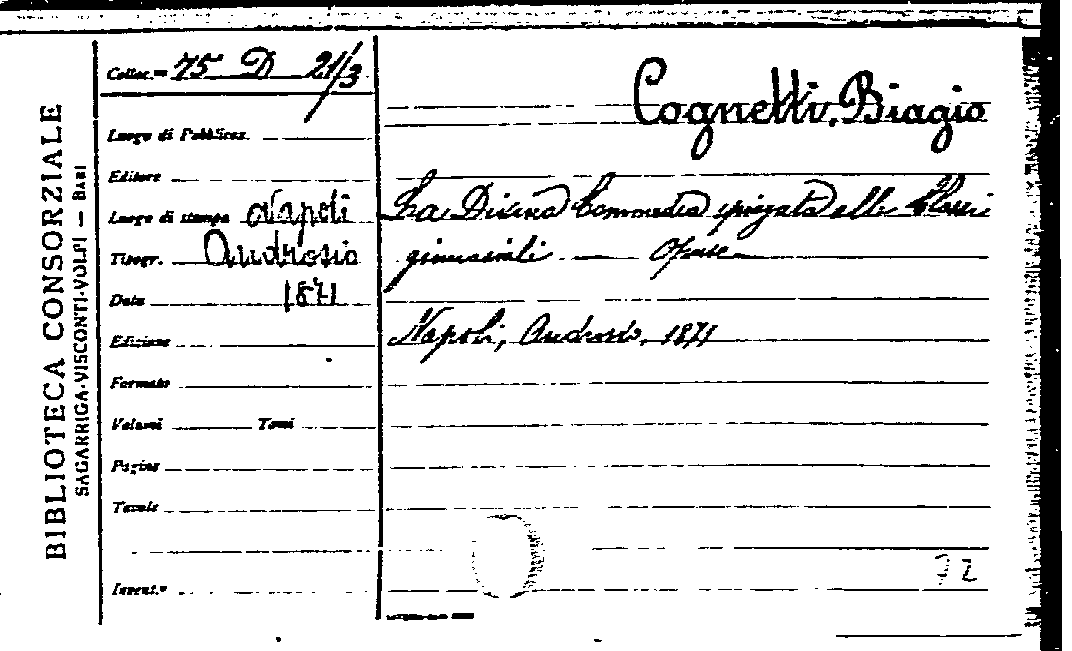 BIBLIOTECA CONSORZIALE
SAGARRIGA-VISCONTI-VOLPI — BARI
Colloc.ne 75 D 21/3
Luogo di Pubblicaz.
Editore
Luogo di stampa Napoli
Tipogr. Androsio
Data 1871
Edizione
Formato
Volumi Tomi
Pagine
Tavole
Invent.º
Cognetti, Biagio
La Divina Commedia spiegata alle Classi
ginnasiali — Opusc
Napoli, Androsio, 1871